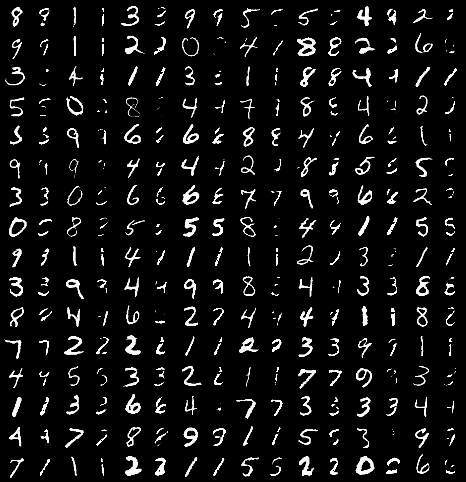 8 8 1 1 3 3 9 9 5 5 5 5 4 4 2 2
9 9 1 1 2 2 0 4 8 8 2 2 6 6
3 4 4 1 1 3 3 1 1 8 8 4 4 1 1
5 5 0 8 4 4 7 8 8 4 4 2
3 3 9 9 6 6 6 8 8 4 4 6 1 1
9 9 9 9 4 4 4 4 2 8 8 5 5 5 5
3 3 0 6 6 6 6 7 7 9 9 6 6 2 2
0 8 8 5 5 5 5 8 4 4 1 1 5 5
9 9 1 1 4 1 1 1 1 2 3 3 1 1
3 3 9 9 4 4 9 9 8 4 4 3 3 8 8
8 8 4 4 6 2 2 4 4 4 4 1 1 8 8
7 7 2 2 2 2 1 1 2 2 3 3 9 9 1 1
4 4 5 5 3 3 2 2 1 1 7 7 0 3 3
1 1 3 3 6 6 4 7 7 3 3 3 3 4 4
4 4 7 7 8 8 9 9 1 1 5 5 3 9 9
7 1 1 2 2 1 1 5 5 2 2 0 6